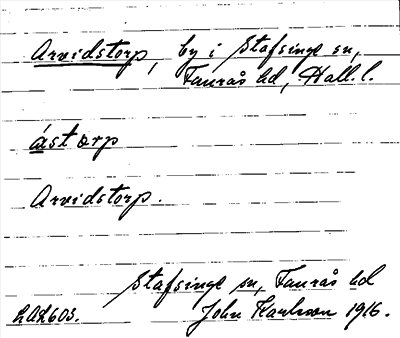 Arvidstorp, by i Stafsinge sn,
Faurås hd, Hall. l.
åst orp
Arvidstorp.
Stafsinge sn, Faurås hd
John Karlsson 1916.